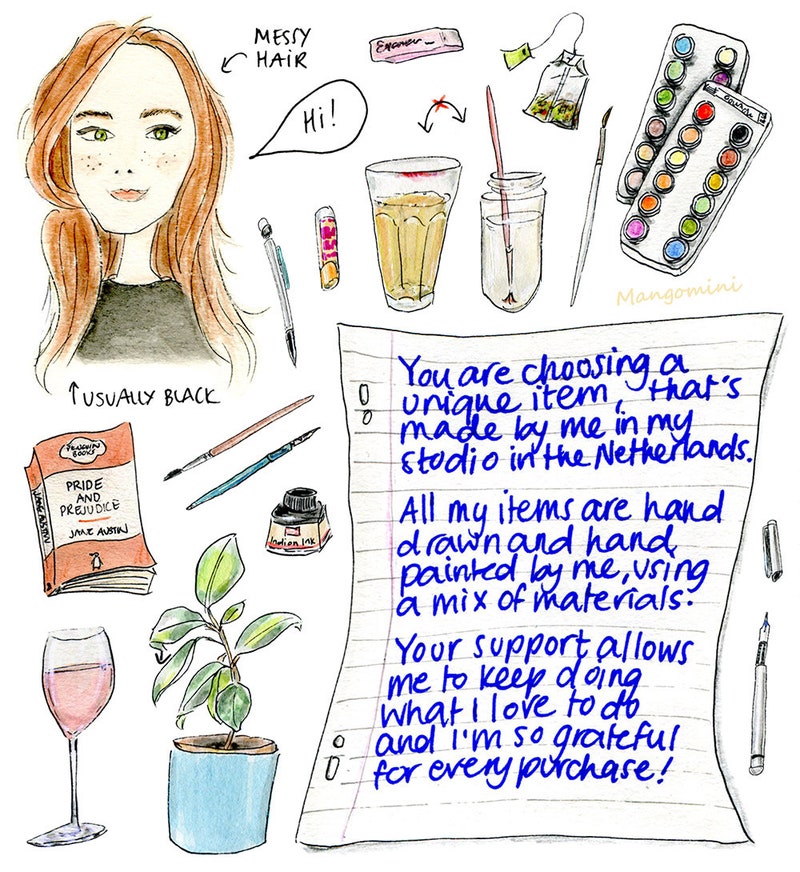 MESSY
HAIR
Hi!
↑USUALLY BLACK
Mangomini
PENGUIN
BOOKS
PRIDE
AND
PREJUDICE
JANE AUSTIN
JANE AUSTIN
Indian Ink
You are choosing a
unique item, that's
made by me in my
studio in the Netherlands.
All my items are hand
drawn and hand
painted by me, using
a mix of materials.
Your support allows
me to keep doing
what I love to do
and I'm so grateful
for every purchase!